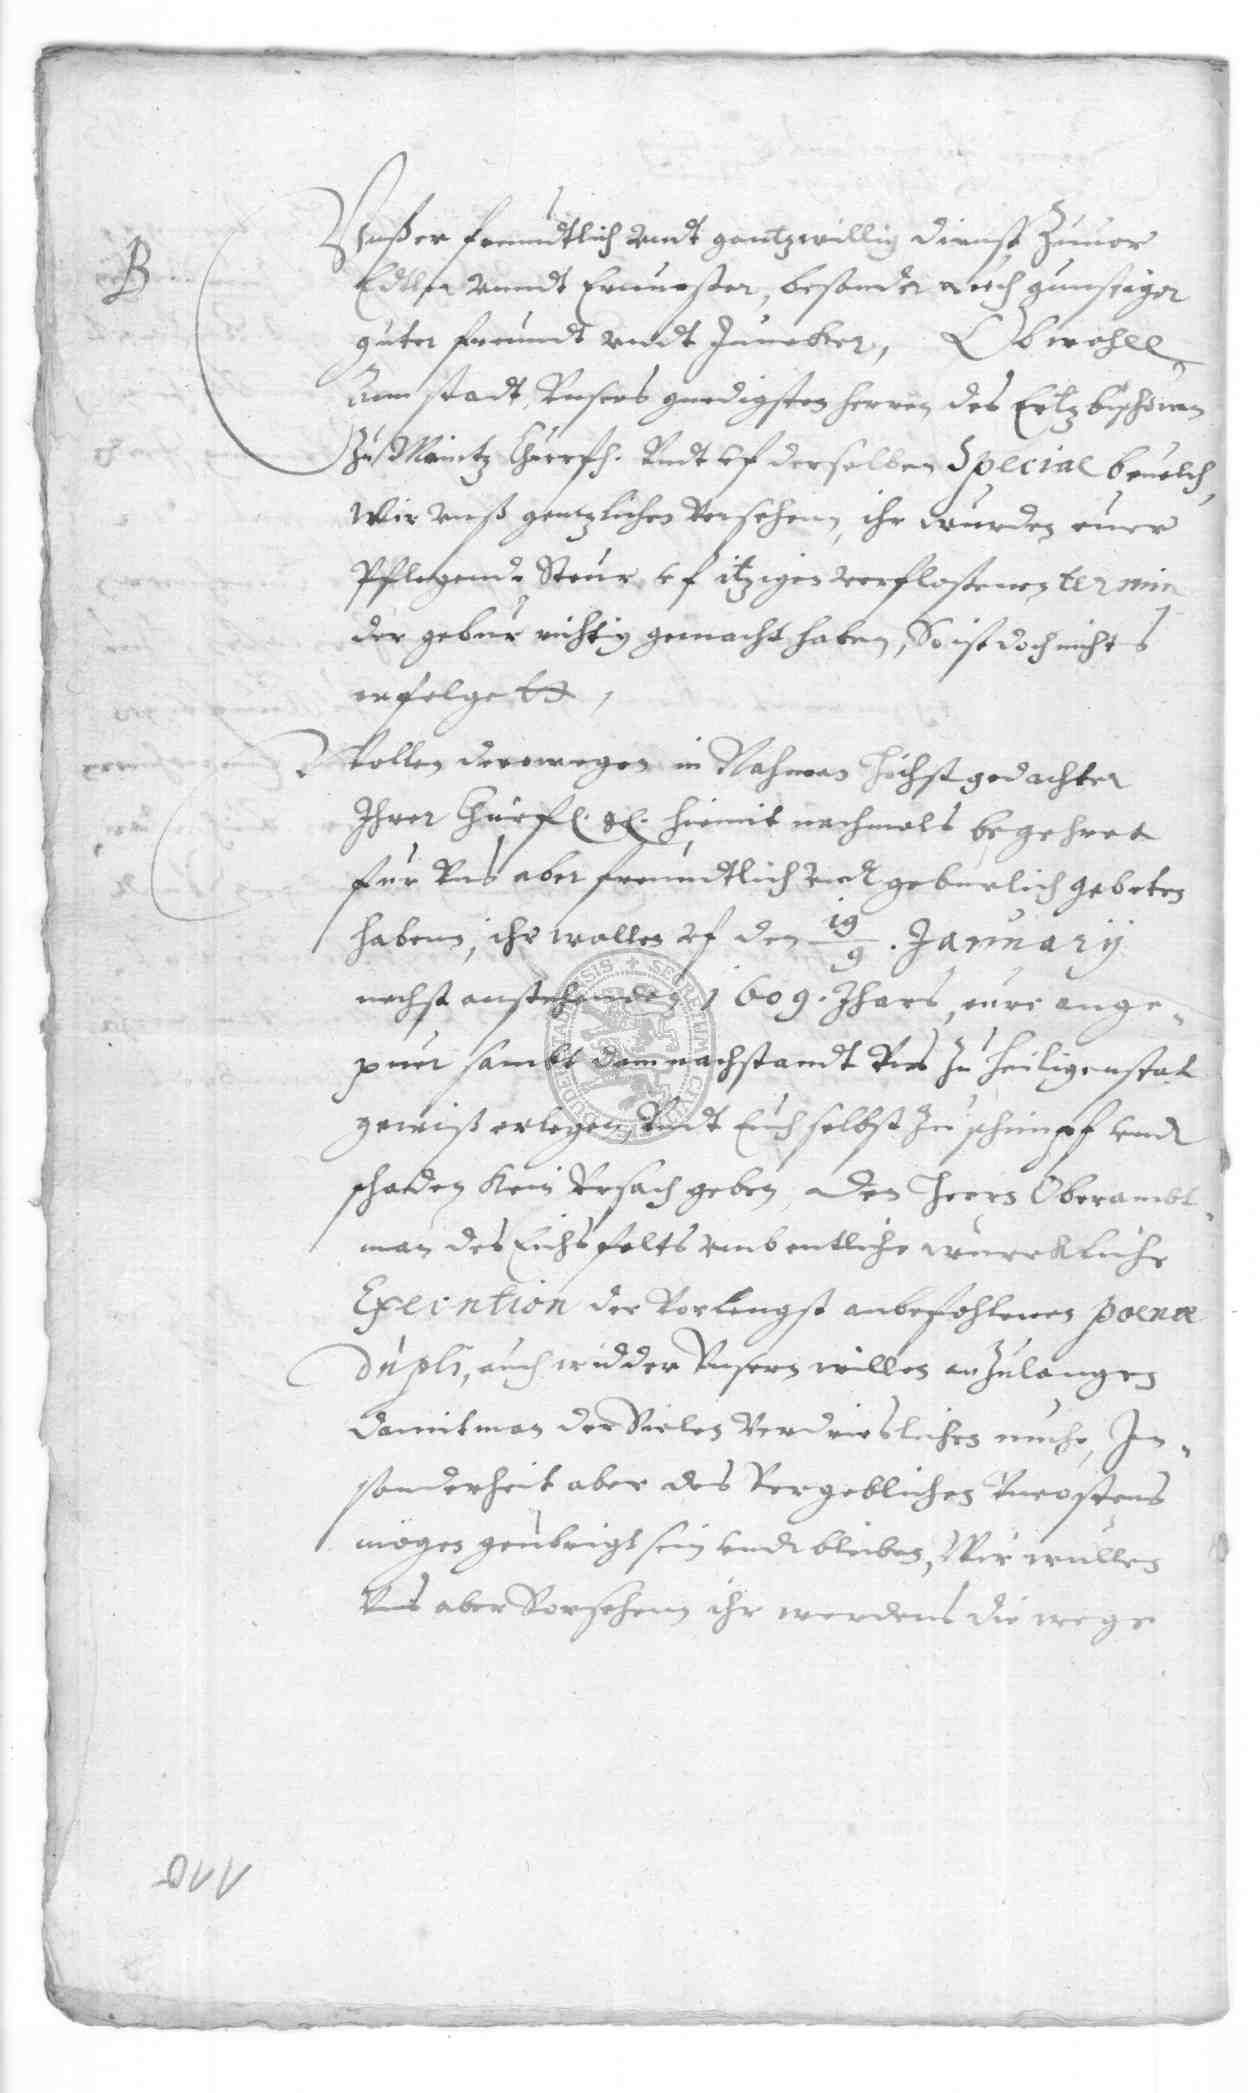 B
Vnßer freundtlich vndt gantzwillig dienst Zuuor
Edtler vnndt Ernuester, besonder auch gunstiger
guter freundt vndt Juncker, Obwohll
anstadt Vnsers gnedigsten herren des Ertzbischouen
Zu Maintz Churfs. Vndt vf derselben Special beuelch,
Wir vnß gentzlichen Versehenn, ihr wurden euer
Pflegende Steur vf itzigen verflossenen termin
der gebur richtig gemacht haben, So ist doch nichts
erfolgett,
Wollen derowegen in Nahmen höchstgedachter
Ihrer Churfl. gl. hiemit nochmals begehret
fur Vns aber freundtlich vnd geburlich gebeten
habenn, ihr wollen vf den 19/9. January
nechst anstehenden 1609. Jhars, eure ange=
puer sambt dem nachstandt Vns Zu Heiligenstat
gewiß erlegen, Vndt Euch selbst Zu schimpf vnd
schaden kein Vrsach geben, den Herrn Oberambt=
man des Eichsfelts vmb entliche wurckliche
Execution der Vorlengst anbefohlenen poenæ
dupli, auch widder Vnsern willen anZulangen
damit man der Vielen Verdrieslichen muhe, In=
sonderheit aber des Vergeblichen Vncostens
mögen geubrigt sein vnd bleiben, Wir wullen
Vns aber Vorsehenn ihr werdens die wege
SECRETUM CIVI